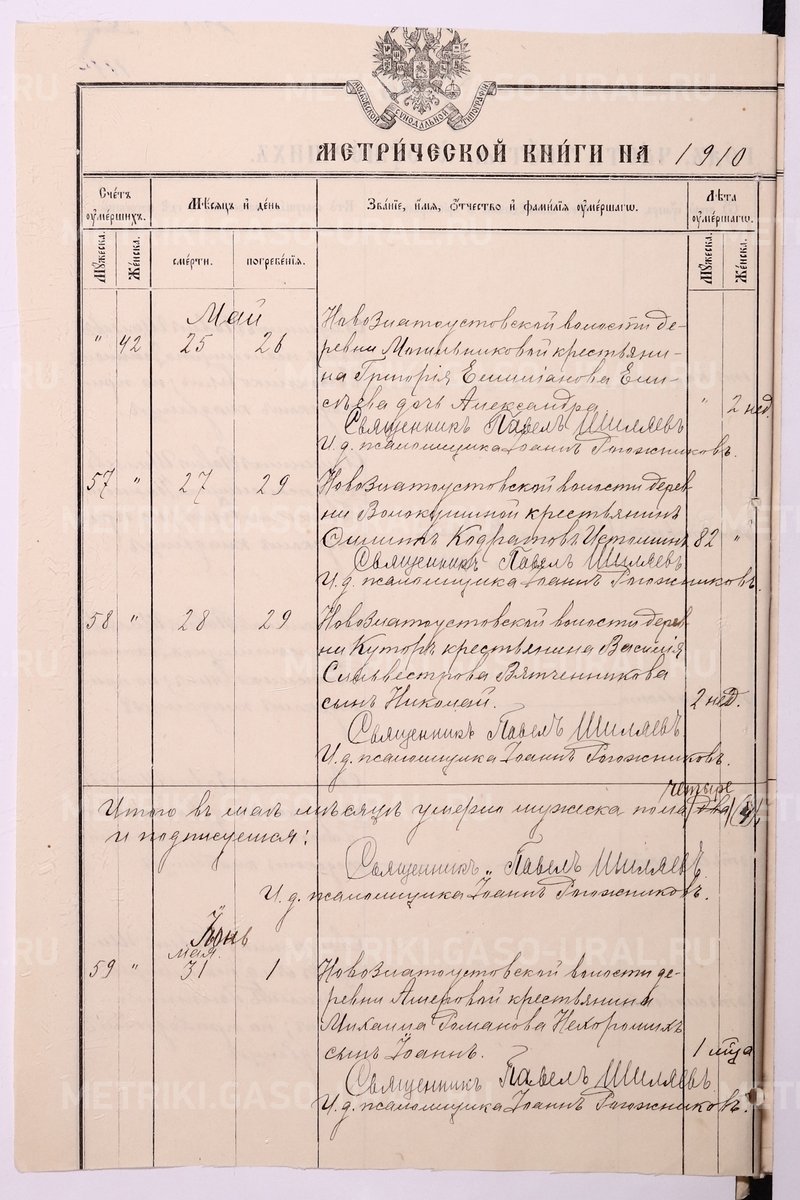 МОСКОВСКОЙ СѴНОДАЛЬНОЙ ТИПОГРАФІИ
МЕТРИ́ЧЕСКОЙ КНИ́ГИ НА 1910
Сче́тъ ᲂу҆ме́ршихъ.
Мѣсяцъ и҆ де́нь
Зва́нїе, и҆́мѧ, ѻ҆́тчество и҆ фамилїѧ ᲂу҆ме́ршагѡ.
Лѣта ᲂу҆ме́ршагѡ.
Мꙋ́жеска.
Же́нска.
сме́рти.
погребе́нїѧ.
Мꙋ́жеска.
Же́нска.
Май
Новозлатоустовской волости де-
" 42 25 26 ревни Мыльниковой крестьяни-
на Григорія Емилiанова Ели-
сѣева дочь Александра " 2 нед.
Священникъ Павелъ Шиляевъ
И. д. псаломщика Іоаннъ Рогожниковъ.
57 " 27 29 Новозлатоустовской волости дерев
ни Волокушиной крестьянинъ
Филиппъ Кодратовъ Истоминъ 82 "
Священникъ Павелъ Шиляевъ
И. д. псаломщика Іоаннъ Рогожниковъ.
58 " 28 29 Новозлатоустовской волости дерев
ни Куторъ крестьянина Василія
Сильвестрова Вятченникова
сынъ Николай. 2 нед.
Священникъ Павелъ Шиляевъ
И. д. псаломщика Іоаннъ Рогожниковъ.
четыре
Итого въ маѣ мѣсяцѣ умерло мужеска пола два (4)
и подписуемся:
Священникъ Павелъ Шиляевъ.
И. д. псаломщика Іоаннъ Рогожниковъ.
Іюнь
мая.
59 " 31 1 Новозлатоустовской волости де-
ревни Амеровой крестьянина
Михаила Романова Нехорошихъ
сынъ Іоаннъ. 1 мѣца
Священникъ Павелъ Шиляевъ
И. д. псаломщика Іоаннъ Рогожниковъ.
METRIKI.GASO-URAL.RU